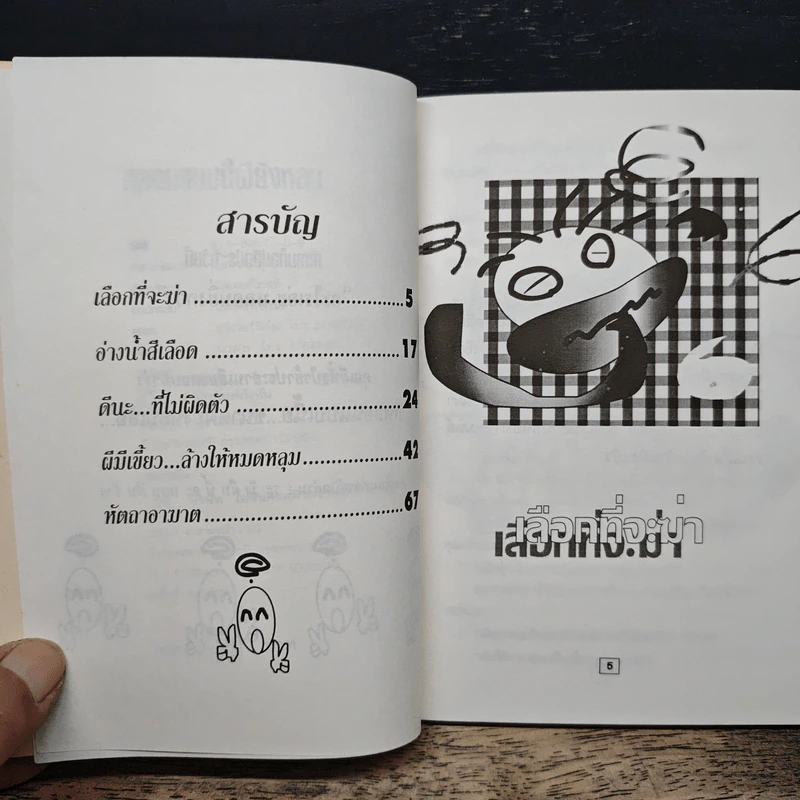 สารบัญ
เลือกที่จะฆ่า ................................5
อ่างน้ำสีเลือด ..............................17
ดีนะ...ที่ไม่ผิดตัว .........................24
ผีมีเขี้ยว...ล้างให้หมดหลุม...............42
หัตถาอาฆาต ..............................67
เลือกที่จะฆ่า
5